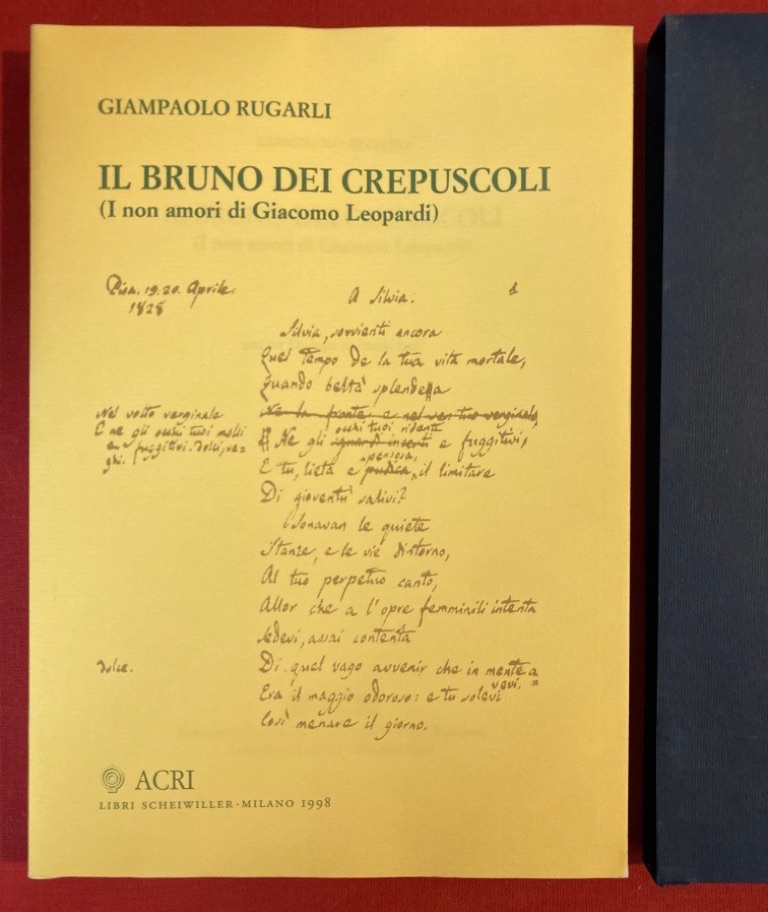 GIAMPAOLO RUGARLI
IL BRUNO DEI CREPUSCOLI
(I non amori di Giacomo Leopardi)
Pisa. 19. 20. Aprile.
1828
A Silvia.
1
Silvia, sovvienti ancora
Quel tempo de la tua vita mortale,
Quando beltà splendea
Ne la fronte e nel sen tuo verginale,
Nel volto verginale
E ne gli occhi tuoi molli
e fuggitivi. dolci, va=
ghi.
occhi tuoi ridenti
E Ne gli sguardi incerti e fuggitivi,
pensosa,
E tu, lieta e pudica, il limitare
Di gioventù salivi?
Sonavan le quiete
Stanze, e le vie dintorno,
Al tuo perpetuo canto,
Allor che a l'opre femminili intenta
Sedevi, assai contenta
dolce.
Di quel vago avvenir che in mente a=
vevi.
Era il maggio odoroso: e tu solevi
Così menare il giorno.
ACRI
LIBRI SCHEIWILLER · MILANO 1998